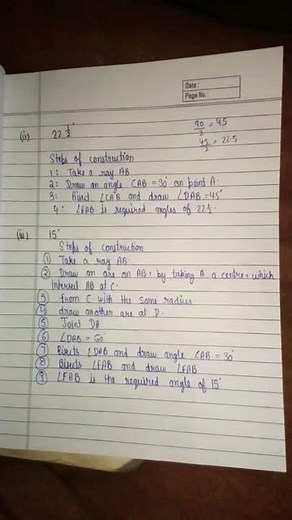 Date :
Page No. :
(ii) 22 1/2° 90/2 = 45
45/2 = 22.5
Steps of construction
1: Take a ray AB
2: Draw an angle CAB = 90° on point A.
3: Bisect ∠CAB and draw ∠DAB = 45°
4: ∠FAB is required angles of 22 1/2.
(iii) 15°
Steps of construction
① Take a ray AB
② Draw an arc on AB, by taking A a centre, which
intersect AB at C.
③ from C with the same radius.
④ draw another arc at D.
⑤ Joint DA
⑥ ∠DAB = 60
⑦ Bisects ∠DAB and draw angle CAB = 30°
⑧ Bisects ∠EAB and draw ∠FAB
⑨ ∠FAB is the required angle of 15°